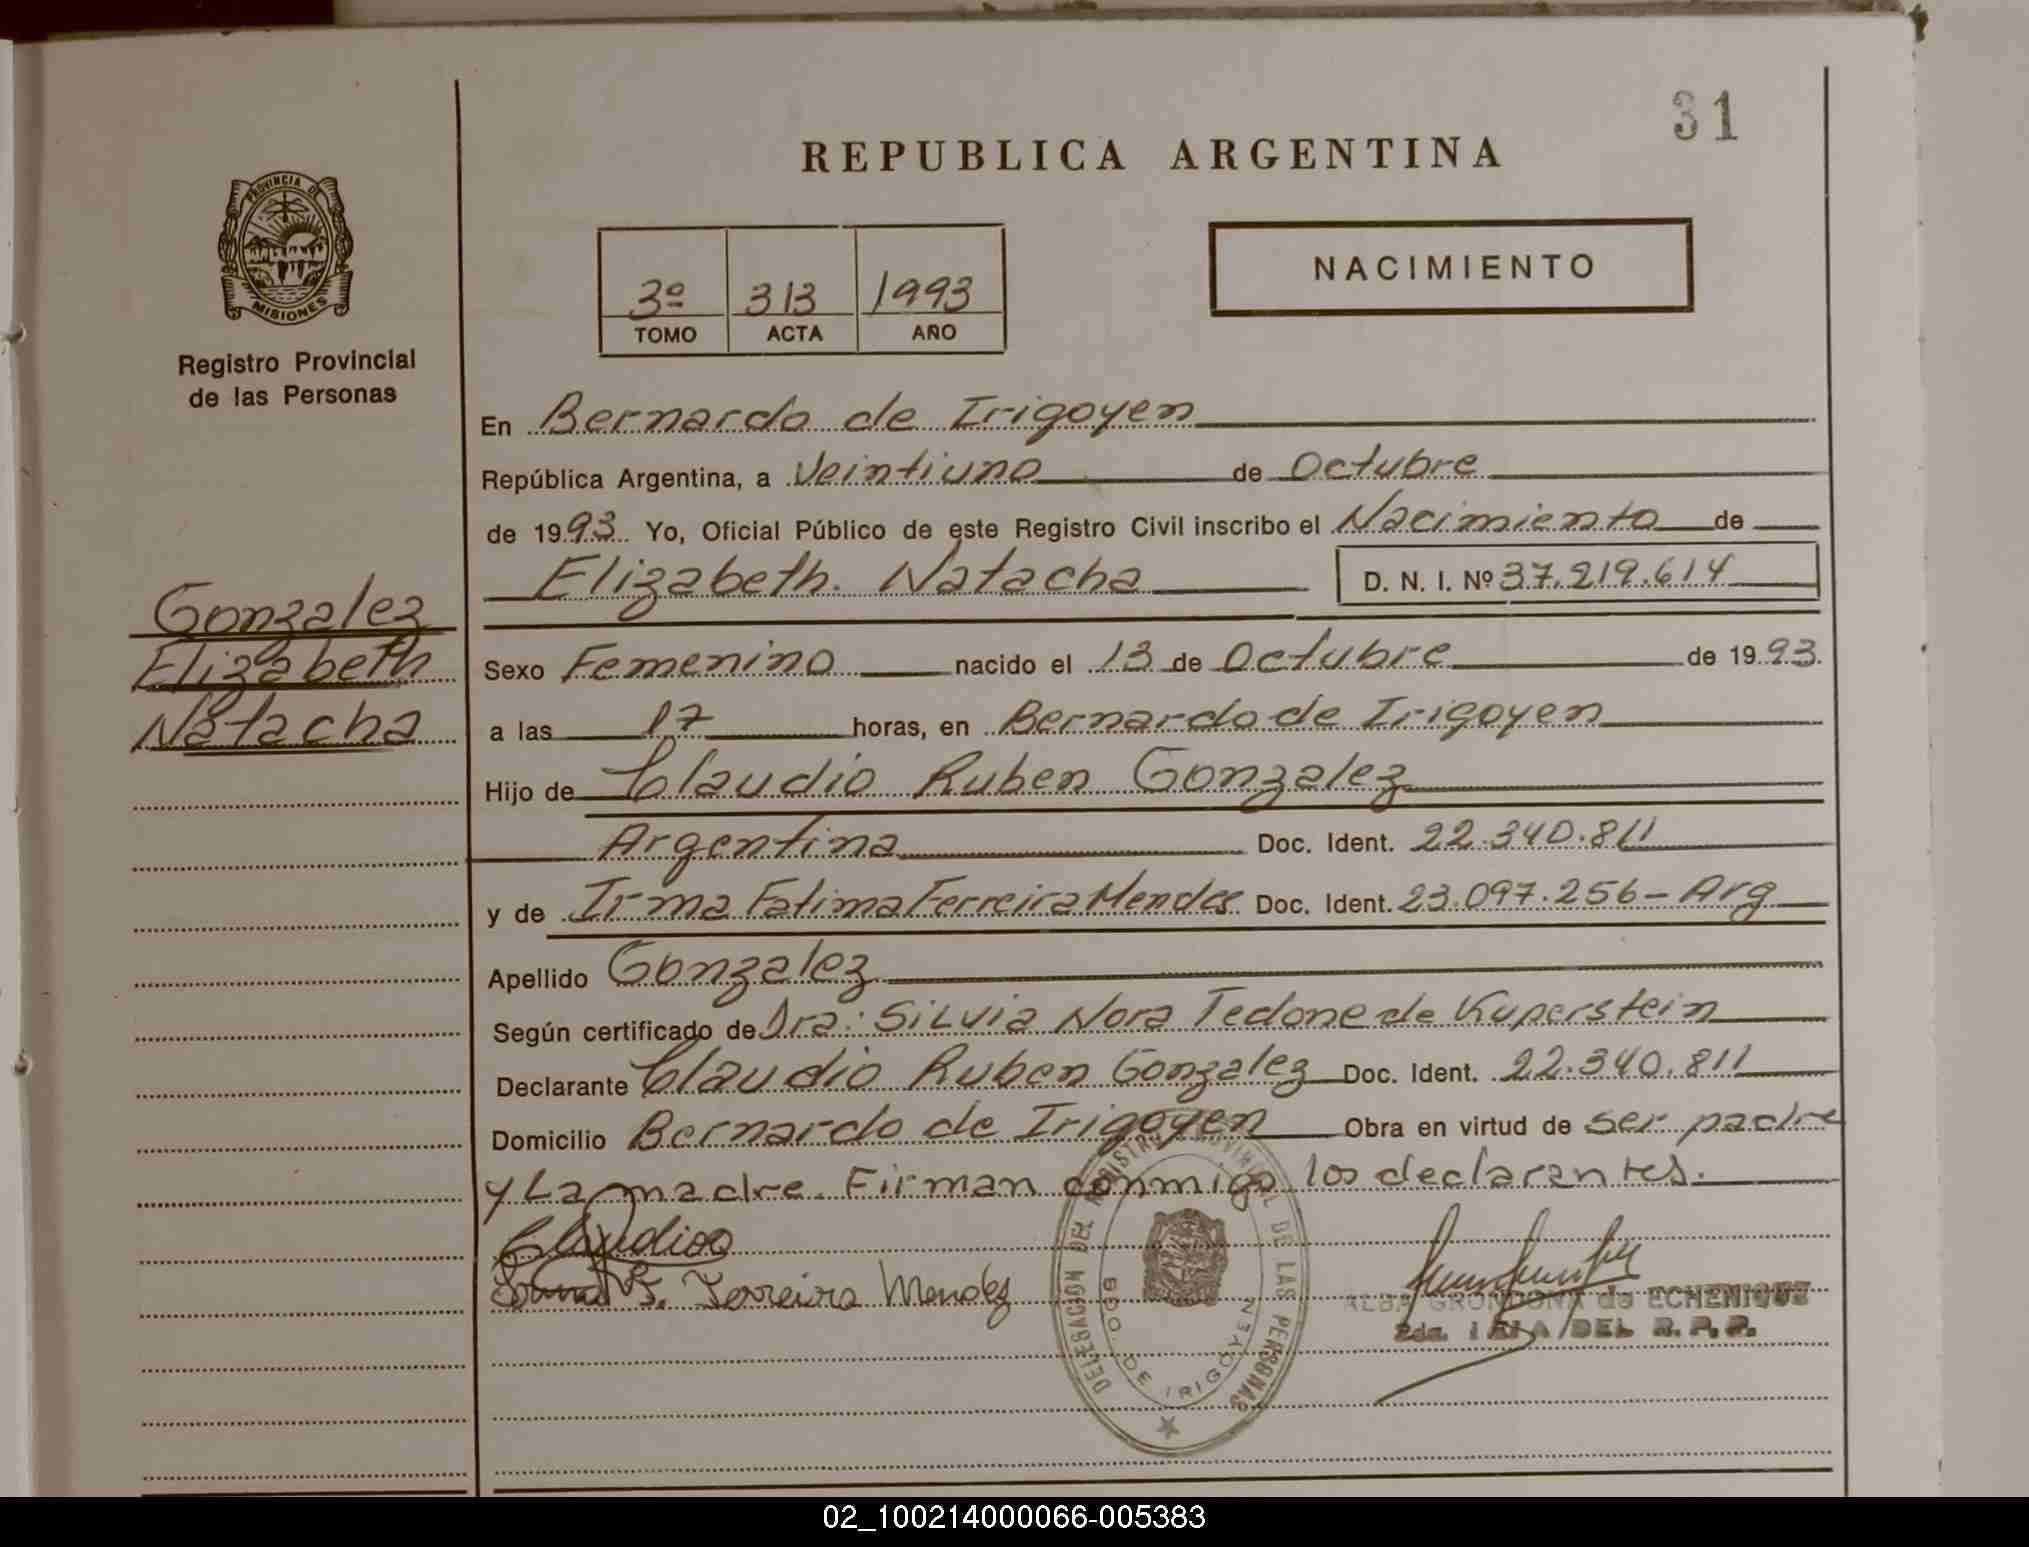 31
REPUBLICA ARGENTINA
PROVINCIA DE
MISIONES
Registro Provincial
de las Personas
NACIMIENTO
3º 313 1993
TOMO ACTA AÑO
En Bernardo de Irigoyen
República Argentina, a Veintiuno de Octubre
de 1993 Yo, Oficial Público de este Registro Civil inscribo el Nacimiento de
Elizabeth. Natacha D. N. I. Nº 37.219.614
Gonzalez
Elizabeth
Natacha
Sexo Femenino nacido el 13 de Octubre de 1993.
a las 17 horas, en Bernardo de Irigoyen
Hijo de Claudio Ruben Gonzalez
Argentina Doc. Ident. 22.340.811
y de Irma Fatima Ferreira Mendes Doc. Ident. 23.097.256 - Arg
Apellido Gonzalez
Según certificado de Dra: Silvia Nora Tedone de Kuperstein
Declarante Claudio Ruben Gonzalez Doc. Ident. 22.340.811
Domicilio Bernardo de Irigoyen Obra en virtud de ser padre
y La madre. Firman conmigo los declarantes.
Claudio
Irma F. Ferreira Mendez
DELEGACION DEL REGISTRO PROVINCIAL DE LAS PERSONAS
BDO. DE IRIGOYEN
ALBA GRONDONA de ECHENIQUE
DEL R.P.P.
02_100214000066-005383